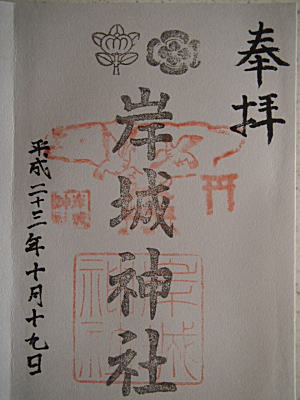 奉拝
岸城神社
平成二十三年十月十九日